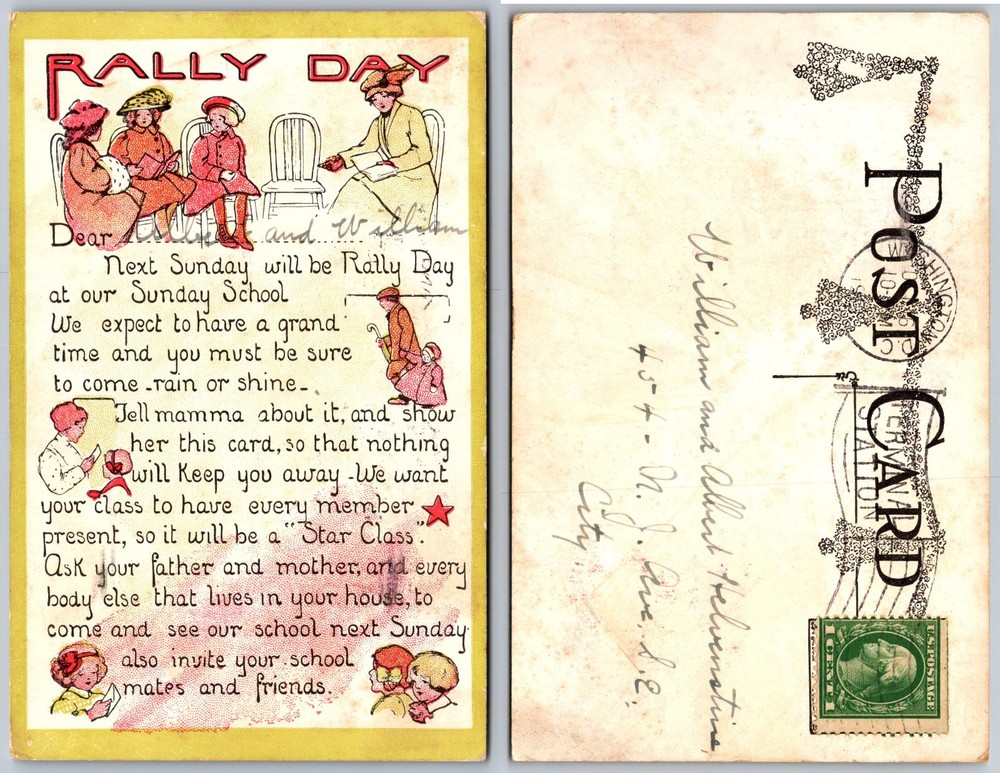 RALLY DAY
Dear Albert and William
Next Sunday will be Rally Day
at our Sunday School
We expect to have a grand
time and you must be sure
to come - rain or shine -
Tell mamma about it, and show
her this card, so that nothing
will keep you away - We want
your class to have every member
present, so it will be a "Star Class".
Ask your father and mother, and every
body else that lives in your house, to
come and see our school next Sunday
also invite your school
mates and friends.
POST CARD
WASHINGTON
D.C.
TERMINAL
STATION
U.S. POSTAGE
1 CENT 1
William and Albert Helvenstine,
454 - N. J. Ave. S. E.
City